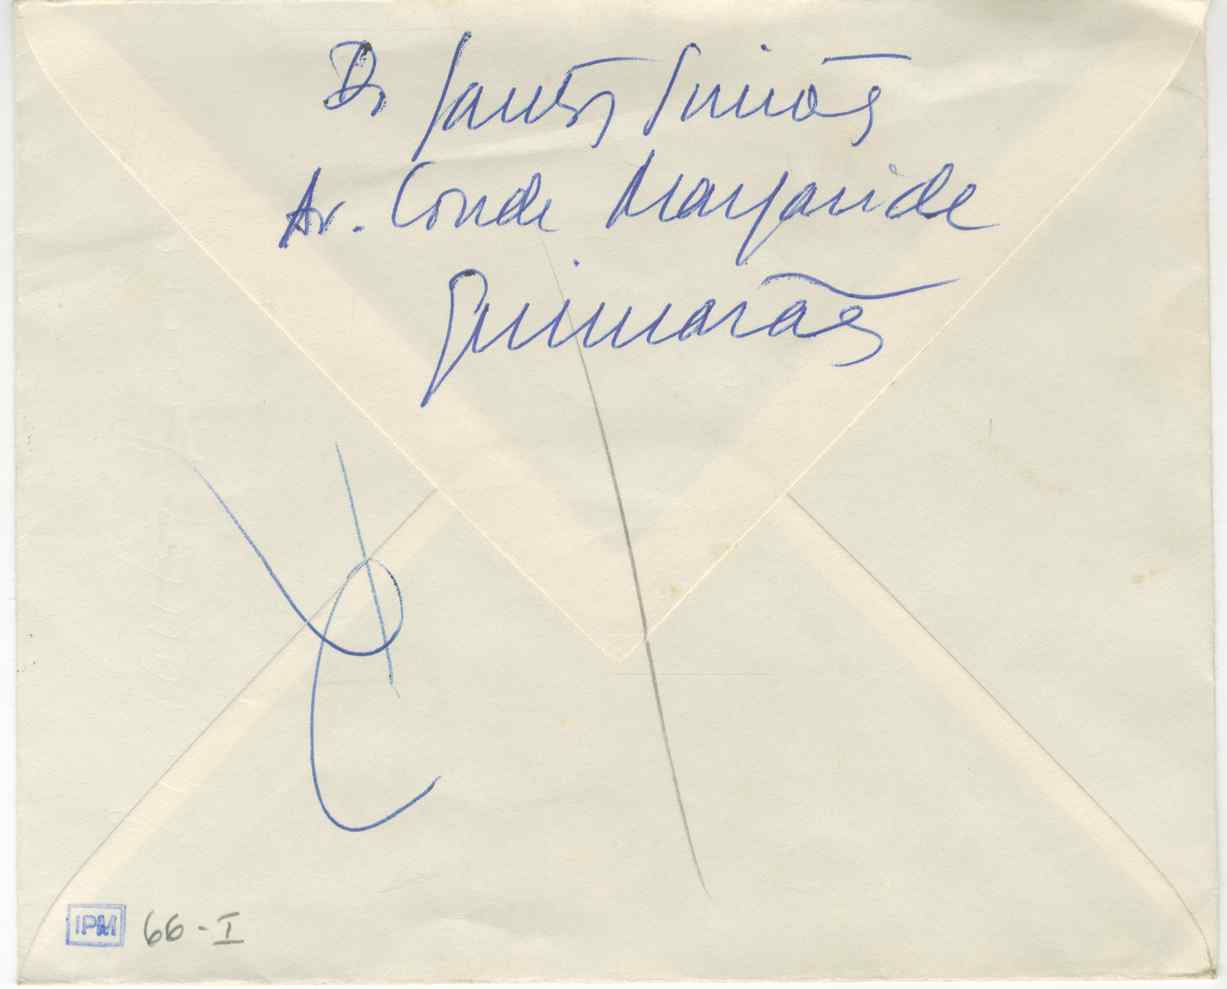 Dr Santos Simões
Av. Conde Margaride
Guimarães
IPM 66-I